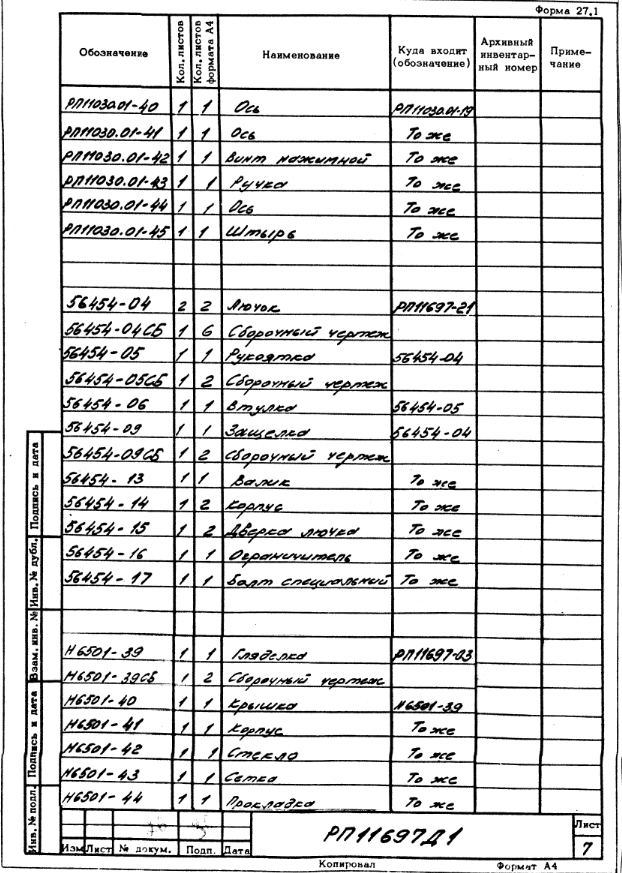 Форма 27.1
Обозначение Кол. листов Кол. листов формата А4 Наименование Куда входит (обозначение) Архивный инвентарный номер Примечание
РП11030.01-40 1 1 Ось РП11030.01-19
РП11030.01-41 1 1 Ось То же
РП11030.01-42 1 1 Винт нажимной То же
РП11030.01-43 1 1 Ручка То же
РП11030.01-44 1 1 Ось То же
РП11030.01-45 1 1 Штырь То же
56454-04 2 2 Лючок РП11697-21
56454-04СБ 1 6 Сборочный чертеж
56454-05 1 1 Рукоятка 56454-04
56454-05СБ 1 2 Сборочный чертеж
56454-06 1 1 Втулка 56454-05
56454-09 1 1 Защелка 56454-04
56454-09СБ 1 2 Сборочный чертеж
56454-13 1 1 Валик То же
56454-14 1 2 Корпус То же
56454-15 1 2 Дверка лючка То же
56454-16 1 1 Ограничитель То же
56454-17 1 1 Болт специальный То же
Н6501-39 1 1 Гляделка РП11697-03
Н6501-39СБ 1 2 Сборочный чертеж
Н6501-40 1 1 Крышка Н6501-39
Н6501-41 1 1 Корпус То же
Н6501-42 1 1 Стекло То же
Н6501-43 1 1 Сетка То же
Н6501-44 1 1 Прокладка То же
Инв. № подл. Подпись и дата Взам. инв. № Инв. № дубл. Подпись и дата
Изм Лист № докум. Подп. Дата
РП11697Д1
Лист
7
Копировал Формат А4